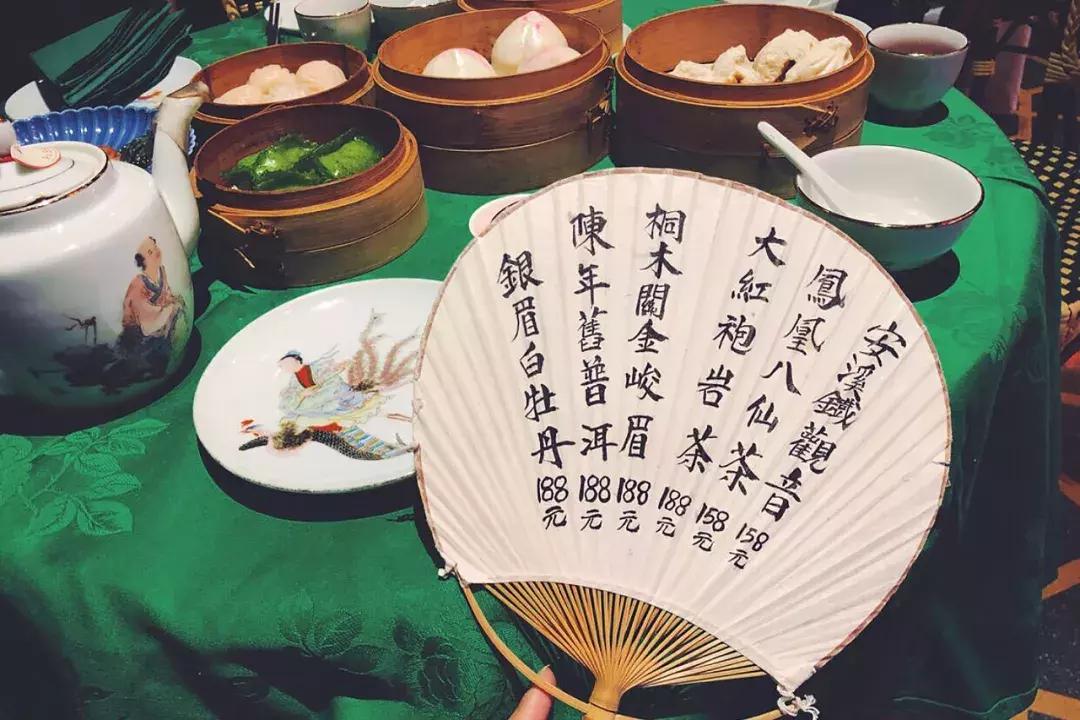 安溪鐵觀音 158元
鳳凰八仙茶 158元
大紅袍岩茶 188元
桐木關金峻眉 188元
陳年舊普洱 188元
銀眉白牡丹 188元